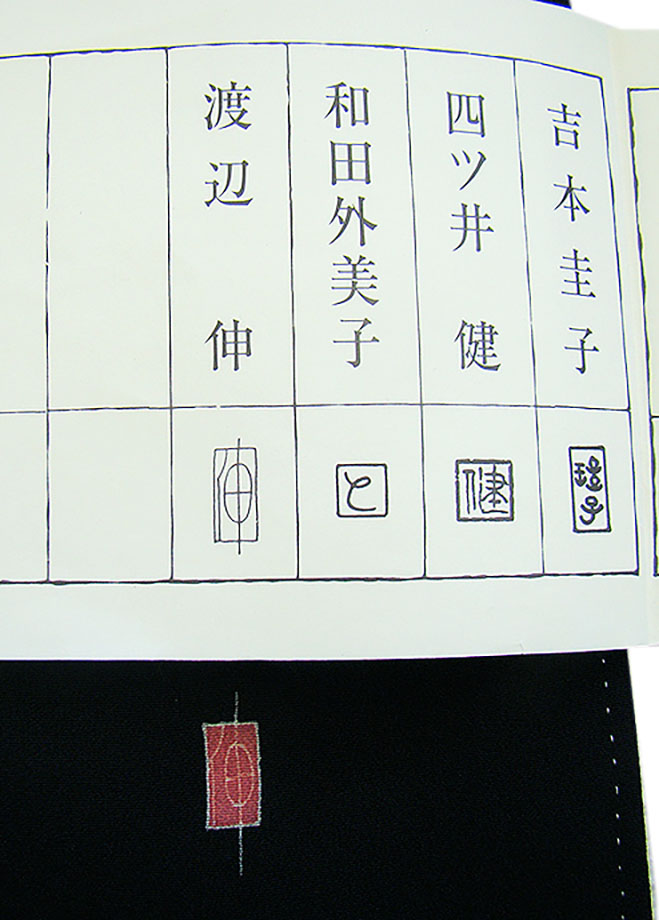 吉本圭子
四ツ井健
和田外美子
渡辺伸
子
健
と
伸
伸